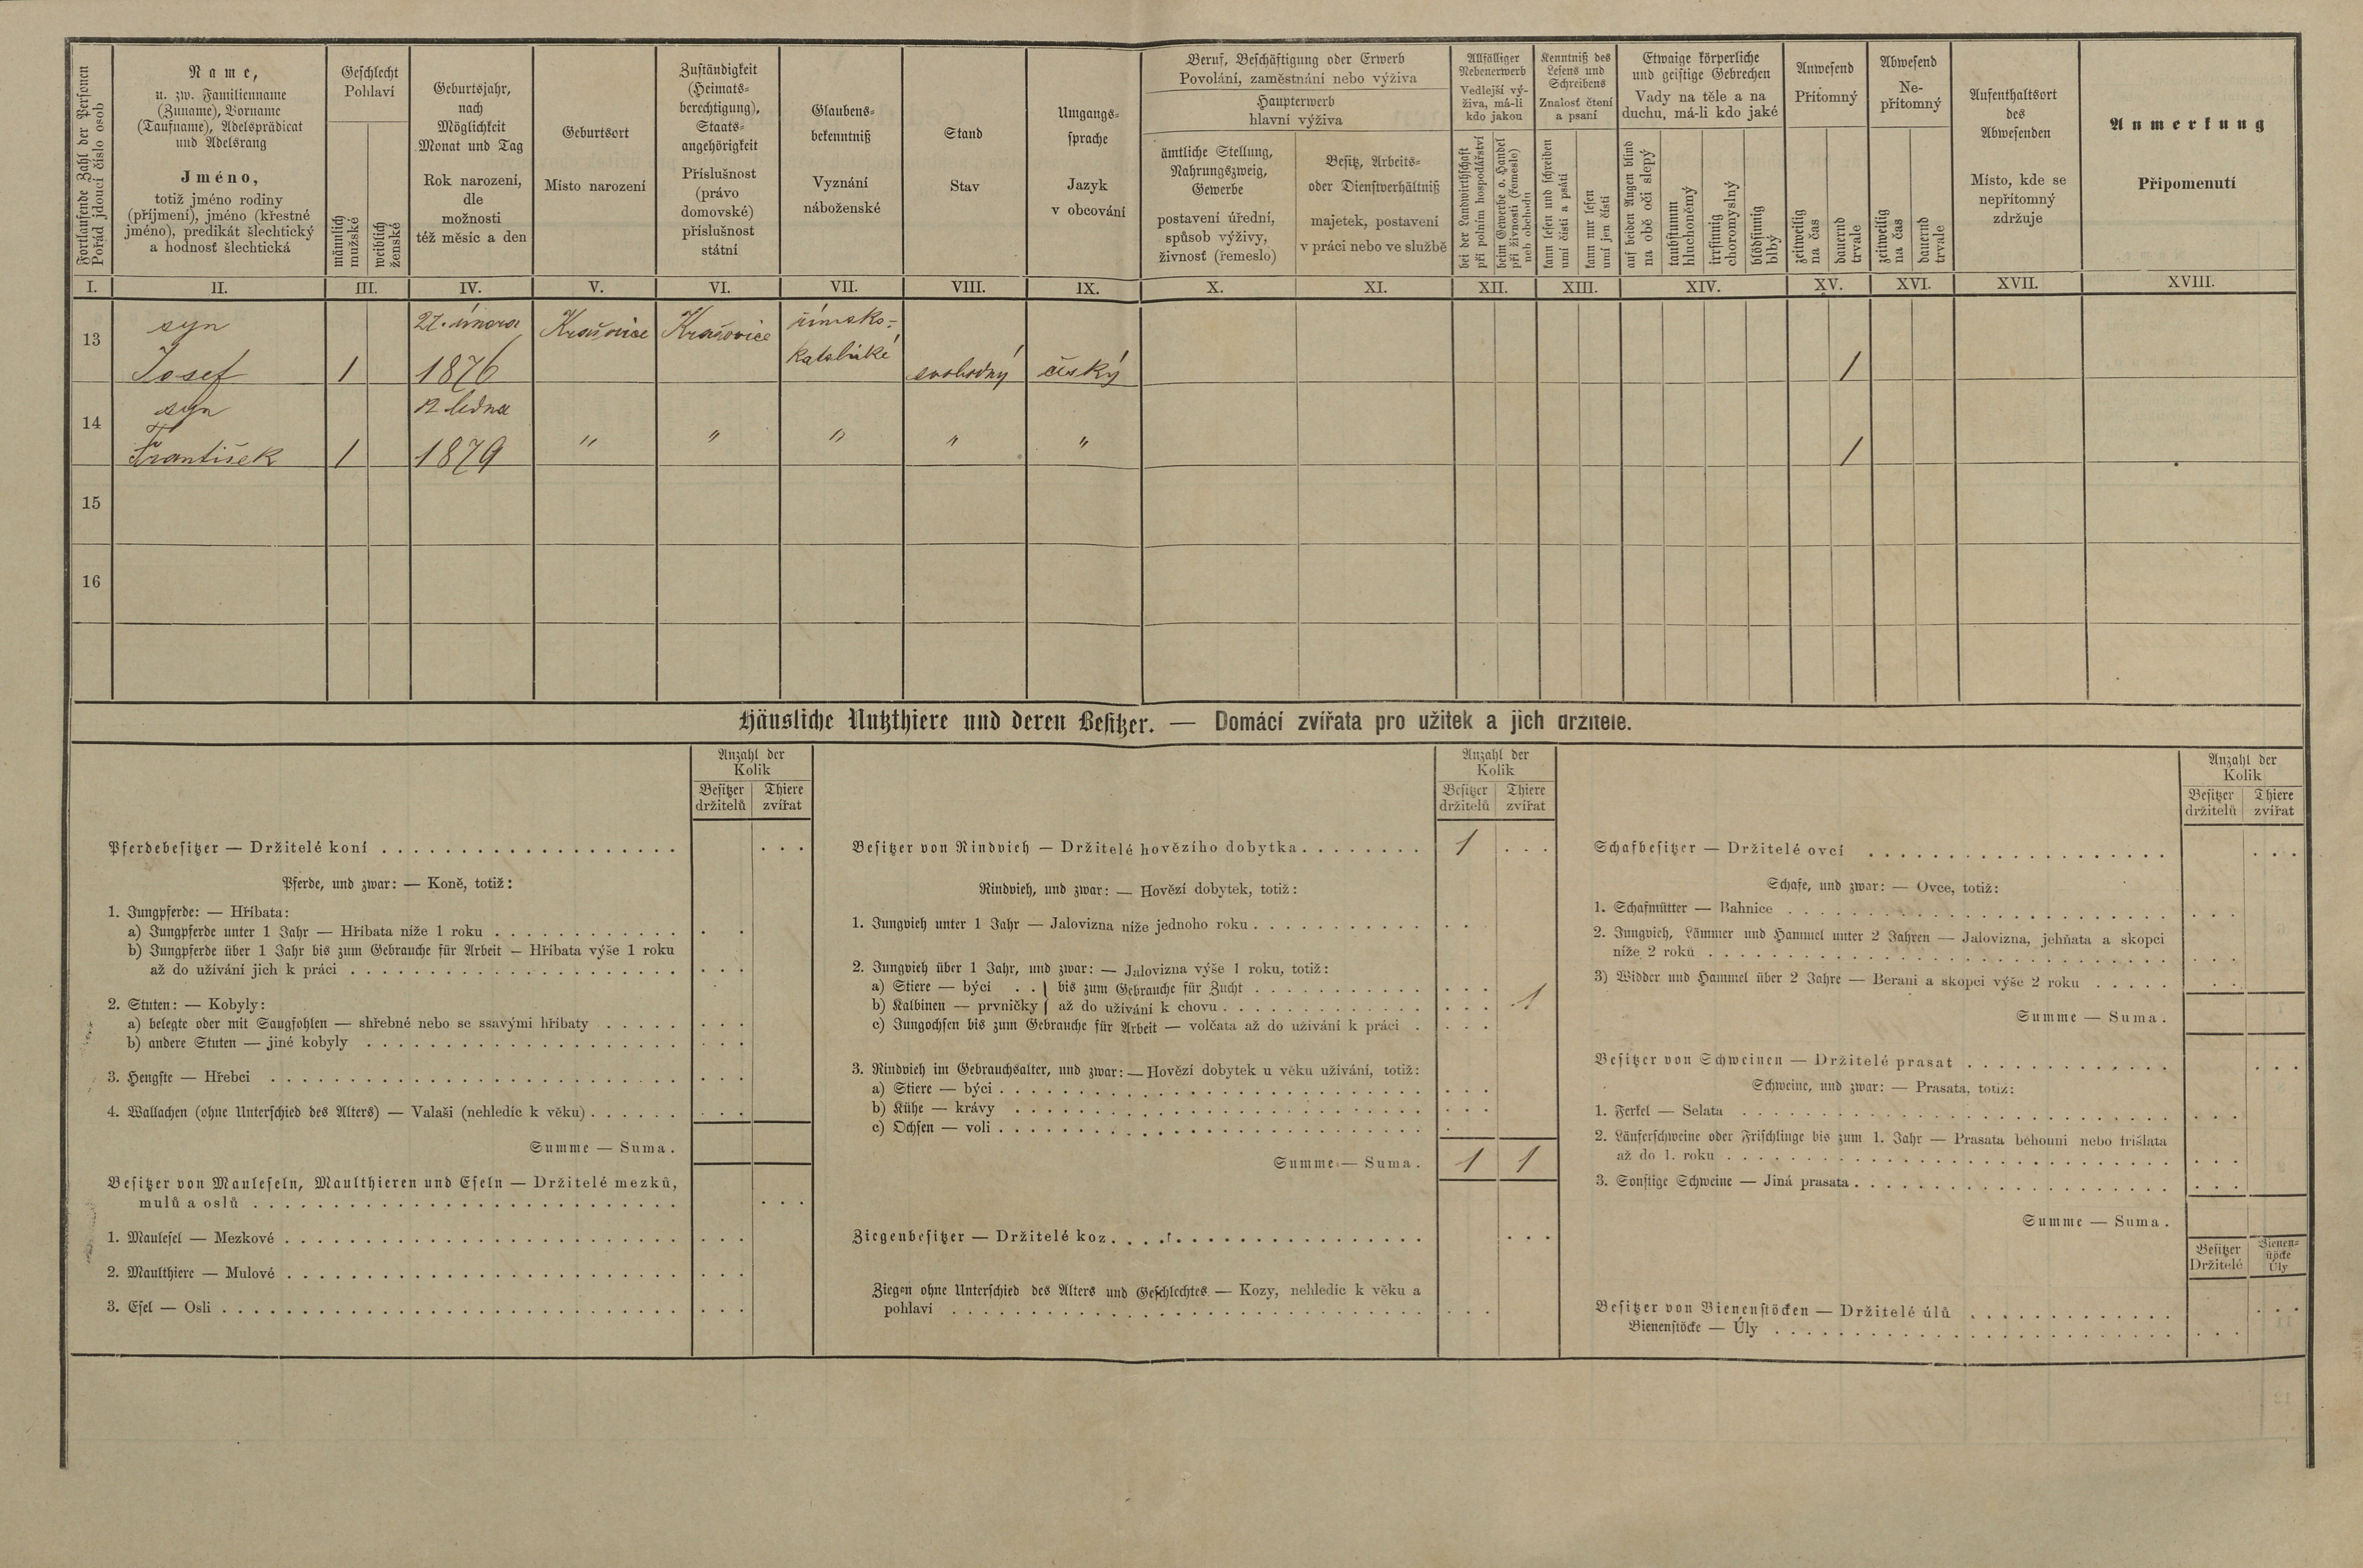 Fortlaufende Zahl der Personen
Pořád jdoucí číslo osob
Name,
u. zw. Familienname
(Zuname), Vorname
(Taufname), Adelsprädicat
und Adelsrang
Jméno,
totiž jméno rodiny
(příjmení), jméno (křestné
jméno), predikát šlechtický
a hodnosť šlechtická
Geschlecht
Pohlaví
männlich
mužské
weiblich
ženské
Geburtsjahr,
nach
Möglichkeit
Monat und Tag
Rok narození,
dle
možnosti
též měsíc a den
Geburtsort
Místo narození
Zuständigkeit
(Heimats-
berechtigung),
Staats-
angehörigkeit
Příslušnost
(právo
domovské)
příslušnost
státní
Glaubens-
bekenntniß
Vyznání
náboženské
Stand
Stav
Umgangs-
sprache
Jazyk
v obcování
Beruf, Beschäftigung oder Erwerb
Povolání, zaměstnání nebo výživa
Haupterwerb
hlavní výživa
ämtliche Stellung,
Nahrungszweig,
Gewerbe
postavení úřední,
spůsob výživy,
živnosť (řemeslo)
Besitz, Arbeits-
oder Dienstverhältniß
majetek, postavení
v práci nebo ve službě
Allfälliger
Nebenerwerb
Vedlejší vý-
živa, má-li
kdo jakou
bei der Landwirthschaft
při polním hospodářství
beim Gewerbe o. Handel
při živnosti (řemesle)
neb obchodu
Kenntniß des
Lesens und
Schreibens
Znalosť čtení
a psaní
kann lesen und schreiben
umí čísti a psáti
kann nur lesen
umí jen čísti
Etwaige körperliche
und geistige Gebrechen
Vady na těle a na
duchu, má-li kdo jaké
auf beiden Augen blind
na obě oči slepý
taubstumm
hluchoněmý
irrsinnig
choromyslný
blödsinnig
blbý
Anwesend
Přítomný
zeitweilig
na čas
dauernd
trvale
Abwesend
Ne-
přítomný
zeitweilig
na čas
dauernd
trvale
Aufenthaltsort
des
Abwesenden
Místo, kde se
nepřítomný
zdržuje
Anmerkung
Připomenutí
I. II. III. IV. V. VI. VII. VIII. IX. X. XI. XII. XIII. XIV. XV. XVI. XVII. XVIII.
13 syn 27. února Krašovice Krašovice římsko-
Josef 1 1876 katolické svobodný český 1
14 syn 12 ledna
František 1 1879 " " " " " 1
15
16
Häusliche Nutzthiere und deren Besitzer. — Domácí zvířata pro užitek a jich držitelé.
Anzahl der
Kolik
Besitzer
držitelů
Thiere
zvířat
Pferdebesitzer — Držitelé koní
Pferde, und zwar: — Koně, totiž:
1. Jungpferde: — Hříbata:
a) Jungpferde unter 1 Jahr — Hříbata níže 1 roku
b) Jungpferde über 1 Jahr bis zum Gebrauche für Arbeit — Hříbata výše 1 roku
až do užívání jich k práci
2. Stuten: — Kobyly:
a) belegte oder mit Saugfohlen — shřebné nebo se ssavými hříbaty
b) andere Stuten — jiné kobyly
3. Hengste — Hřebci
4. Wallachen (ohne Unterschied des Alters) — Valaši (nehledíc k věku)
Summe — Suma.
Besitzer von Mauleseln, Maulthieren und Eseln — Držitelé mezků,
mulů a oslů
1. Maulesel — Mezkové
2. Maulthiere — Mulové
3. Esel — Osli
Anzahl der
Kolik
Besitzer
držitelů
Thiere
zvířat
Besitzer von Rindvieh — Držitelé hovězího dobytka 1
Rindvieh, und zwar: — Hovězí dobytek, totiž:
1. Jungvieh unter 1 Jahr — Jalovizna níže jednoho roku
2. Jungvieh über 1 Jahr, und zwar: — Jalovizna výše 1 roku, totiž:
a) Stiere — býci } bis zum Gebrauche für Zucht
b) Kalbinen — prvničky } až do užívání k chovu 1
c) Jungochsen bis zum Gebrauche für Arbeit — volčata až do užívání k práci
3. Rindvieh im Gebrauchsalter, und zwar: — Hovězí dobytek u věku užívání, totiž:
a) Stiere — býci
b) Kühe — krávy
c) Ochsen — voli
Summe — Suma. 1 1
Ziegenbesitzer — Držitelé koz
Ziegen ohne Unterschied des Alters und Geschlechtes — Kozy, nehledíc k věku a
pohlaví
Anzahl der
Kolik
Besitzer
držitelů
Thiere
zvířat
Schafbesitzer — Držitelé ovcí
Schafe, und zwar: — Ovce, totiž:
1. Schafmütter — Bahnice
2. Jungvieh, Lämmer und Hammel unter 2 Jahren — Jalovizna, jehňata a skopci
níže 2 roků
3) Widder und Hammel über 2 Jahre — Berani a skopci výše 2 roku
Summe — Suma.
Besitzer von Schweinen — Držitelé prasat
Schweine, und zwar: — Prasata, totiž:
1. Ferkel — Selata
2. Läuferschweine oder Frischlinge bis zum 1. Jahr — Prasata běhouni nebo frišlata
až do 1. roku
3. Sonstige Schweine — Jiná prasata
Summe — Suma.
Besitzer
Držitelé
Bienen-
stöcke
Úly
Besitzer von Bienenstöcken — Držitelé úlů
Bienenstöcke — Úly